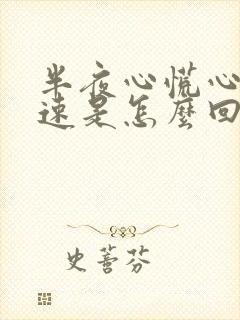 半夜心慌心
速是怎麼回
史蕾芬